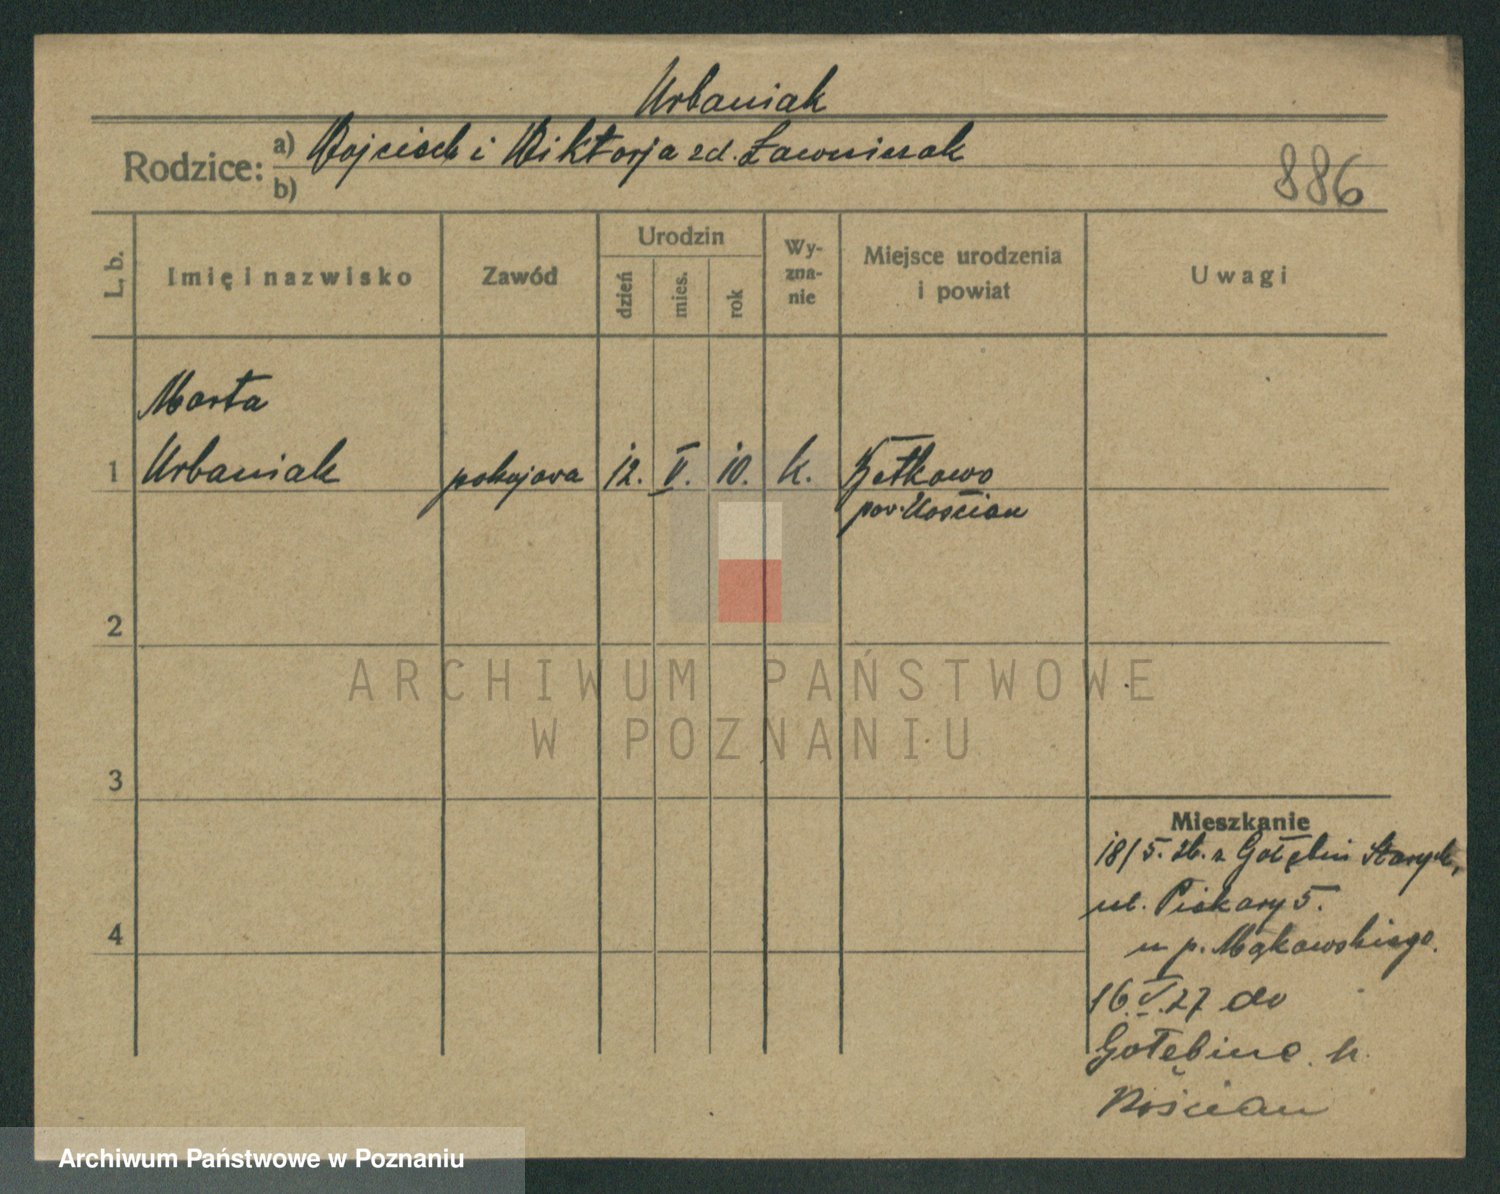 Urbaniak
Rodzice: a) Wojciech i Wiktorja zd. Ławniczak
b)
886
L. b.
Imię i nazwisko
Zawód
Urodzin
dzień
mies.
rok
Wy-
zna-
nie
Miejsce urodzenia
i powiat
Uwagi
Marta
1 Urbaniak pokojowa 12. V. 10. k. Betkowo
pow. Kościan
2
3
4
ARCHIWUM PAŃSTWOWE
W POZNANIU
Mieszkanie
18/5. 26. z Gołębin Starych,
ul. Piekary 5.
u p. Mąkowskiego.
16.V.27 do
Gołębine k.
Kościan
Archiwum Państwowe w Poznaniu